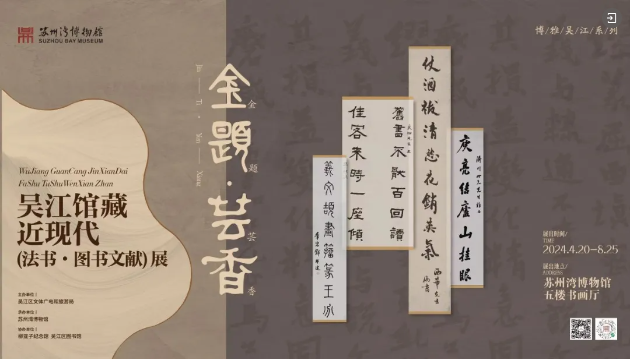 苏州湾博物馆
SUZHOU BAY MUSEUM
博/雅/吴/江/系/列
金題·芸香
金
題
芸
香
Jin
Ti
Yun
Xiang
WuJiang GuanCang JinXianDai
FaShu TuShuWenXian Zhan
吴江馆藏
近现代
(法书·图书文献)展
主办单位/
吴江区文体广电和旅游局
承办单位/
苏州湾博物馆
协办单位/
柳亚子纪念馆 吴江区图书馆
舊書不猒百回讀
佳客来時一座傾
仗酒祓清愁花銷英氣
展出时间/
TIME
2024.4.20-6.25
展出地点/
苏州湾博物馆
五楼书画厅